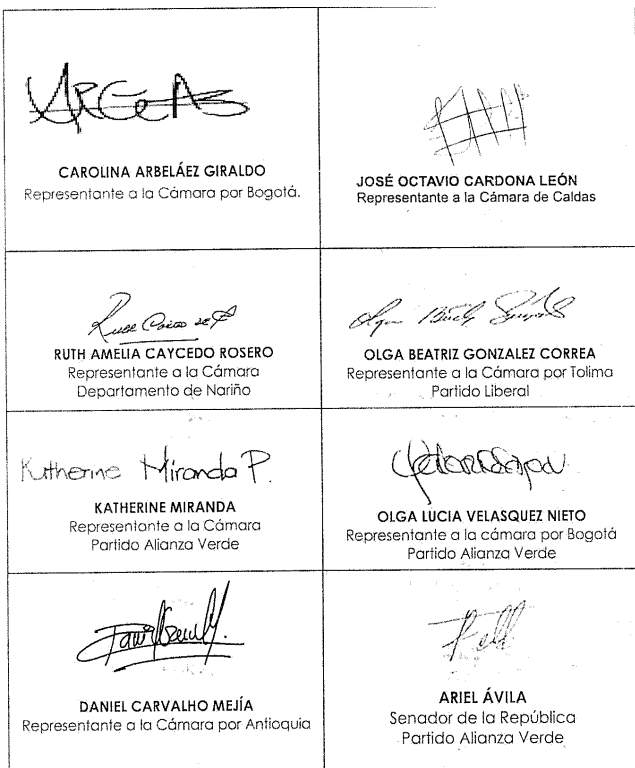 CAROLINA ARBELÁEZ GIRALDO
Representante a la Cámara por Bogotá.
JOSÉ OCTAVIO CARDONA LEÓN
Representante a la Cámara de Caldas
RUTH AMELIA CAYCEDO ROSERO
Representante a la Cámara
Departamento de Nariño
OLGA BEATRIZ GONZALEZ CORREA
Representante a la Cámara por Tolima
Partido Liberal
Katherine Miranda P.
KATHERINE MIRANDA
Representante a la Cámara
Partido Alianza Verde
OLGA LUCIA VELASQUEZ NIETO
Representante a la cámara por Bogotá
Partido Alianza Verde
DANIEL CARVALHO MEJÍA
Representante a la Cámara por Antioquia
ARIEL ÁVILA
Senador de la República
Partido Alianza Verde